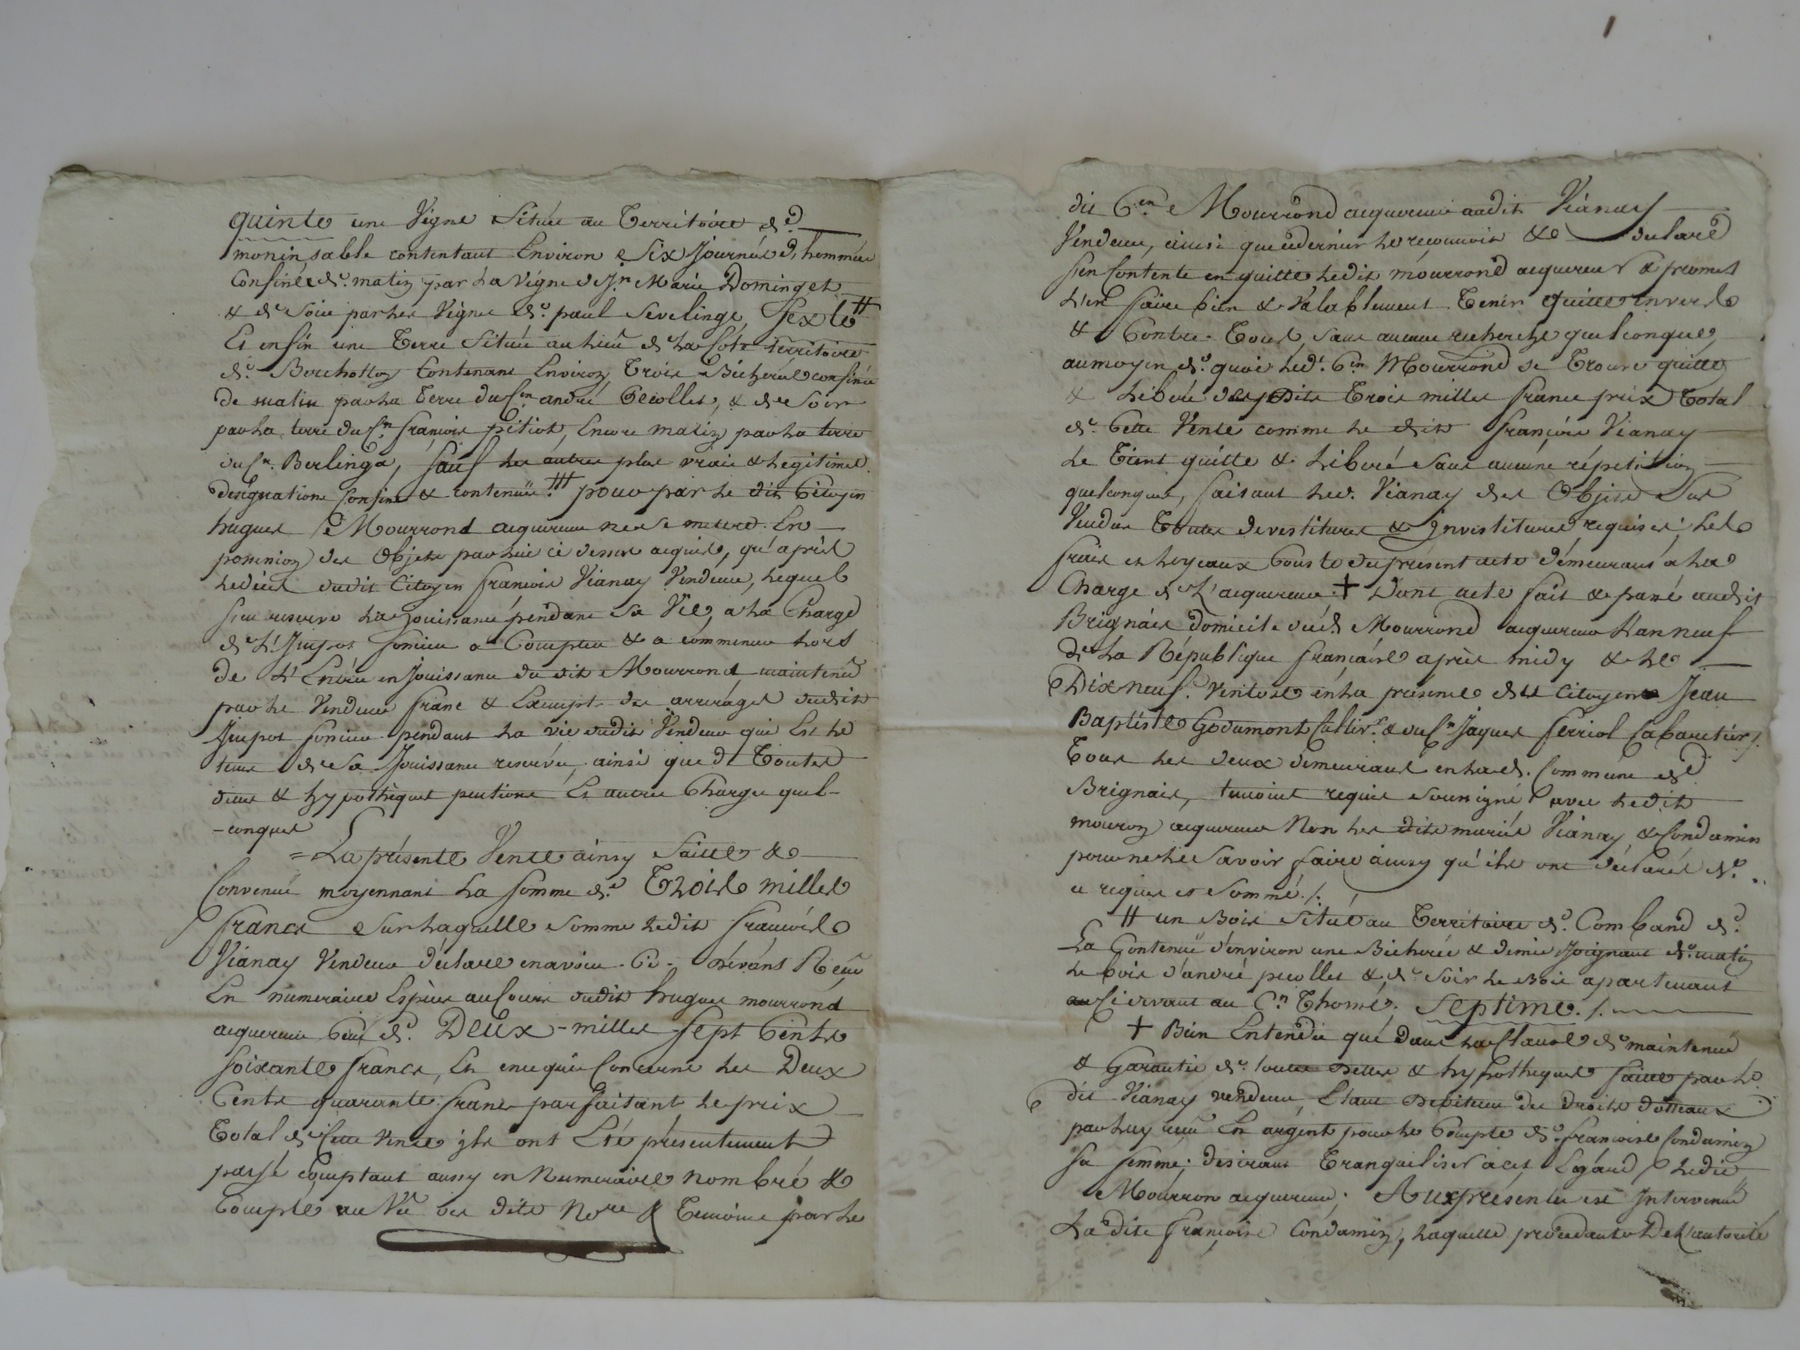 quinte une Vigne Située au Territoire de
moninsable contentant Environ Six Journée d'hommée
Confinée de matin par La Vigne de Jn Marie Dominget
& de Soir par Les Vigne de paul Sevelinge, Sexte ⧺
Et enfin une Terre Située au Lieu de La Côte territoire
de Bouchollon Contenant Environ Trois Bicherée confinée
de matin par La Terre du Cn andré Pecollet, & de Soir
par La terre du Cn françois pitiot, Encore matin par La terre
du Cn Berlinga, Sauf Les autres plus vraie & Legitimes
designations Confins & contenue. pour par Le dit Citoyen
hugues Mourrond acquereur ne Se mettre En
possession des Objets par Lui ci dessus acquis, qu'après
Le déces dudit Citoyen françois Vianay Vendeur, Lequel
S'en reserve La jouissance pendant Sa Vie, a La Charge
de L'Impot foncier a Compter & a commencer Lors
de L'Entrée en Jouissance du dit Mourrond maintenu
par Le Vendeur franc & Exempt des arrérages dudit
Impot foncier pendant La vie dudit Vendeur qui Est Le
tems de Sa Jouissance reservée, ainsi que de Toutes
dettes & hypothèques pentions Et autres Charges quel-
-conques
= La présente Vente ainsy faitte &
Convenue moyennant La Somme de Trois milles
francs Sur Laquelle Somme Ledit françois
Vianay Vendeur déclare en avoir Ci-devant Réçu
En numeraire Espèces au Cours dudit hugues mourrond
acquereur Celle de Deux-milles Sept Cents
Soixante francs, Et en ce qui Concerne Les Deux
Cents quarante francs parfaisant Le prix
Total de Cette Vente ils ont Eté présentement
payé Comptant aussy en Numeraire nombré &
Compté au Vu des dits Nore & Temoins par Le
dit Cen Mourrond acquereur audit Vianay
Vendeur, ainsi que ce dernier Le reconnoit & declare
S'en Contente en quitte Ledit mourrond acquereur & promet
L'en faire bien & Valablement Tenir quitte envers
& Contre Tous, Sans aucune recherche quelconque,
au moyen de quoi Led. Cen Mourrond Se Trouve quitte
& Libéré desdits Trois milles francs prix Total
de Cette Vente comme Le dit françois Vianay
Le Tient quitte & Libéré Sans aucune répétition
quelconque, faisant Led. Vianay des Objets Sus
Vendus Toutes devestitures & Investitures requises; Les
frais et Loyeaux Couts du présent acte démeurans à La
Charge de L'acquereur ✝ Dont acte fait & passé audit
Brignais domicile dud. Mourrond acquereur L'an neuf
de La République française après midy & Le
Dix neuf Ventose en La présence des Citoyens Jean
Baptiste Godumont & du Cn Jaques ferriol Cabaretier
Tous Les deux demeurant en La d. Commune de
Brignais, temoins requis Soussigné avec Ledit
mouron acquereur Non Les dits mariés Vianay & Condamin
pour ne Le Savoir faire ainsy qu'ils ont déclaré de
ce requis et Sommé ./.
⧺ un Bois Situé au Territoire de Comband de
La Contenue d'environ une Bicherée & demie Joignant de matin
Le Bois d'andré pecollet & de Soir Le Bois apartenant
au Cn Thomé. Septime ./.
✝ Bien Entendu que dans La Clause de maintenue
& Garantie de toute Dettes & hypotheques faitte par Le
dit Vianay vendeur, Etant Debiteur des droits dotteaux
par Luy reçu En argent pour Le Compte de françoise Condamin
Sa femme; desirant Tranquiliser a cet Egard Ledit
Mourron acquereur; Aux présentes est Intervenue
La dite françoise Condamin, Laquelle procedante de L'autorité